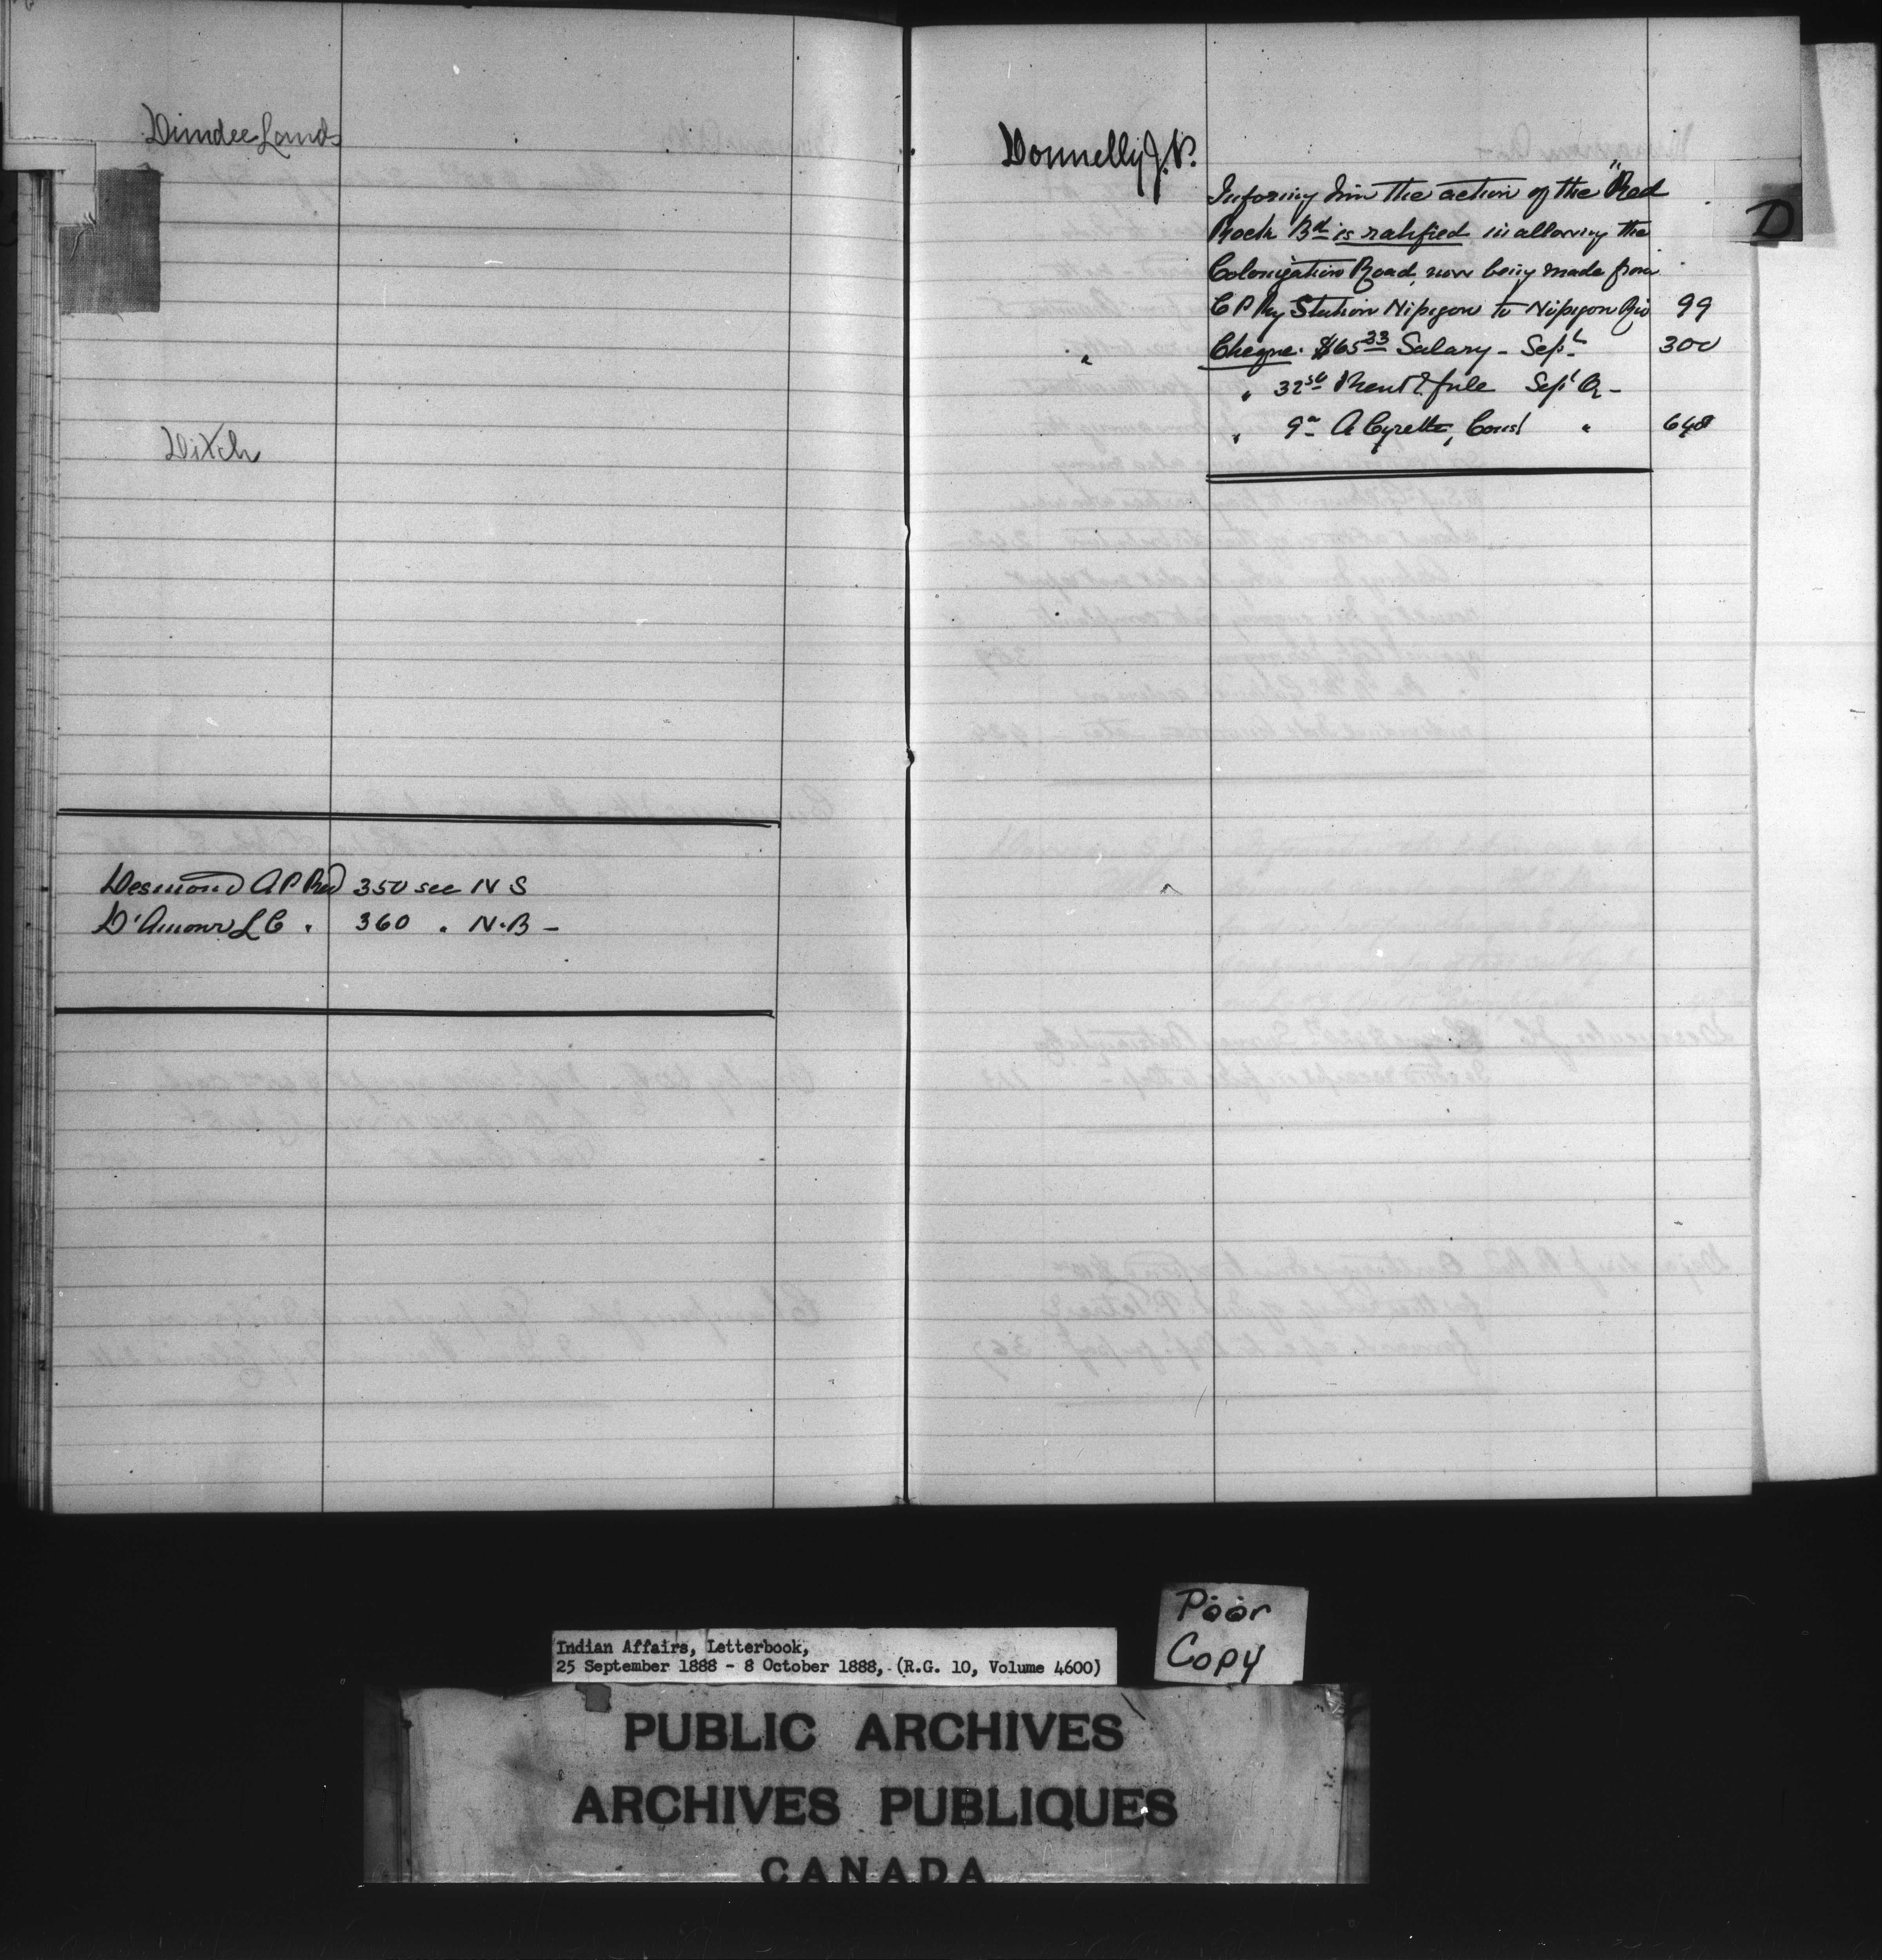 Dundee Lands
Ditch
Desmond A P Rev 350 see N S
D'Amour L C " 360 " N.B -
Donnelly J. P.
Informing him the action of the "Red
Rock Bd is ratified in allowing the
Colonization Road, now being made from
C P Ry Station Nipigon to Nipigon Riv 99
" Cheque. $65 23 Salary - Sept 300
" 32 50 Rent & fule Sept Qr -
" 9 - A Cyrette, Const " 648
D
Poor
Copy
Indian Affairs, Letterbook,
25 September 1888 - 8 October 1888, (R.G. 10, Volume 4600)
PUBLIC ARCHIVES
ARCHIVES PUBLIQUES
CANADA